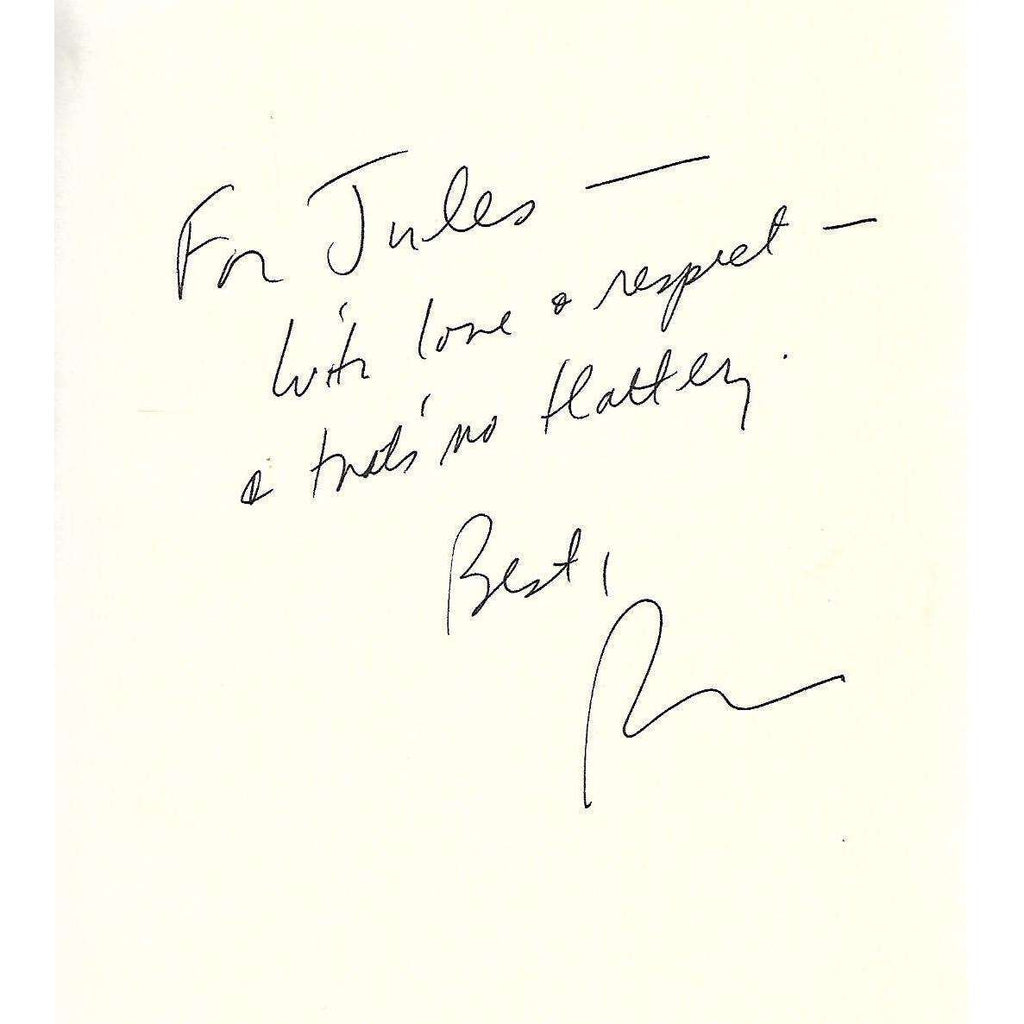 For Jules —
With love & respect —
& that's no flattery.
Best,